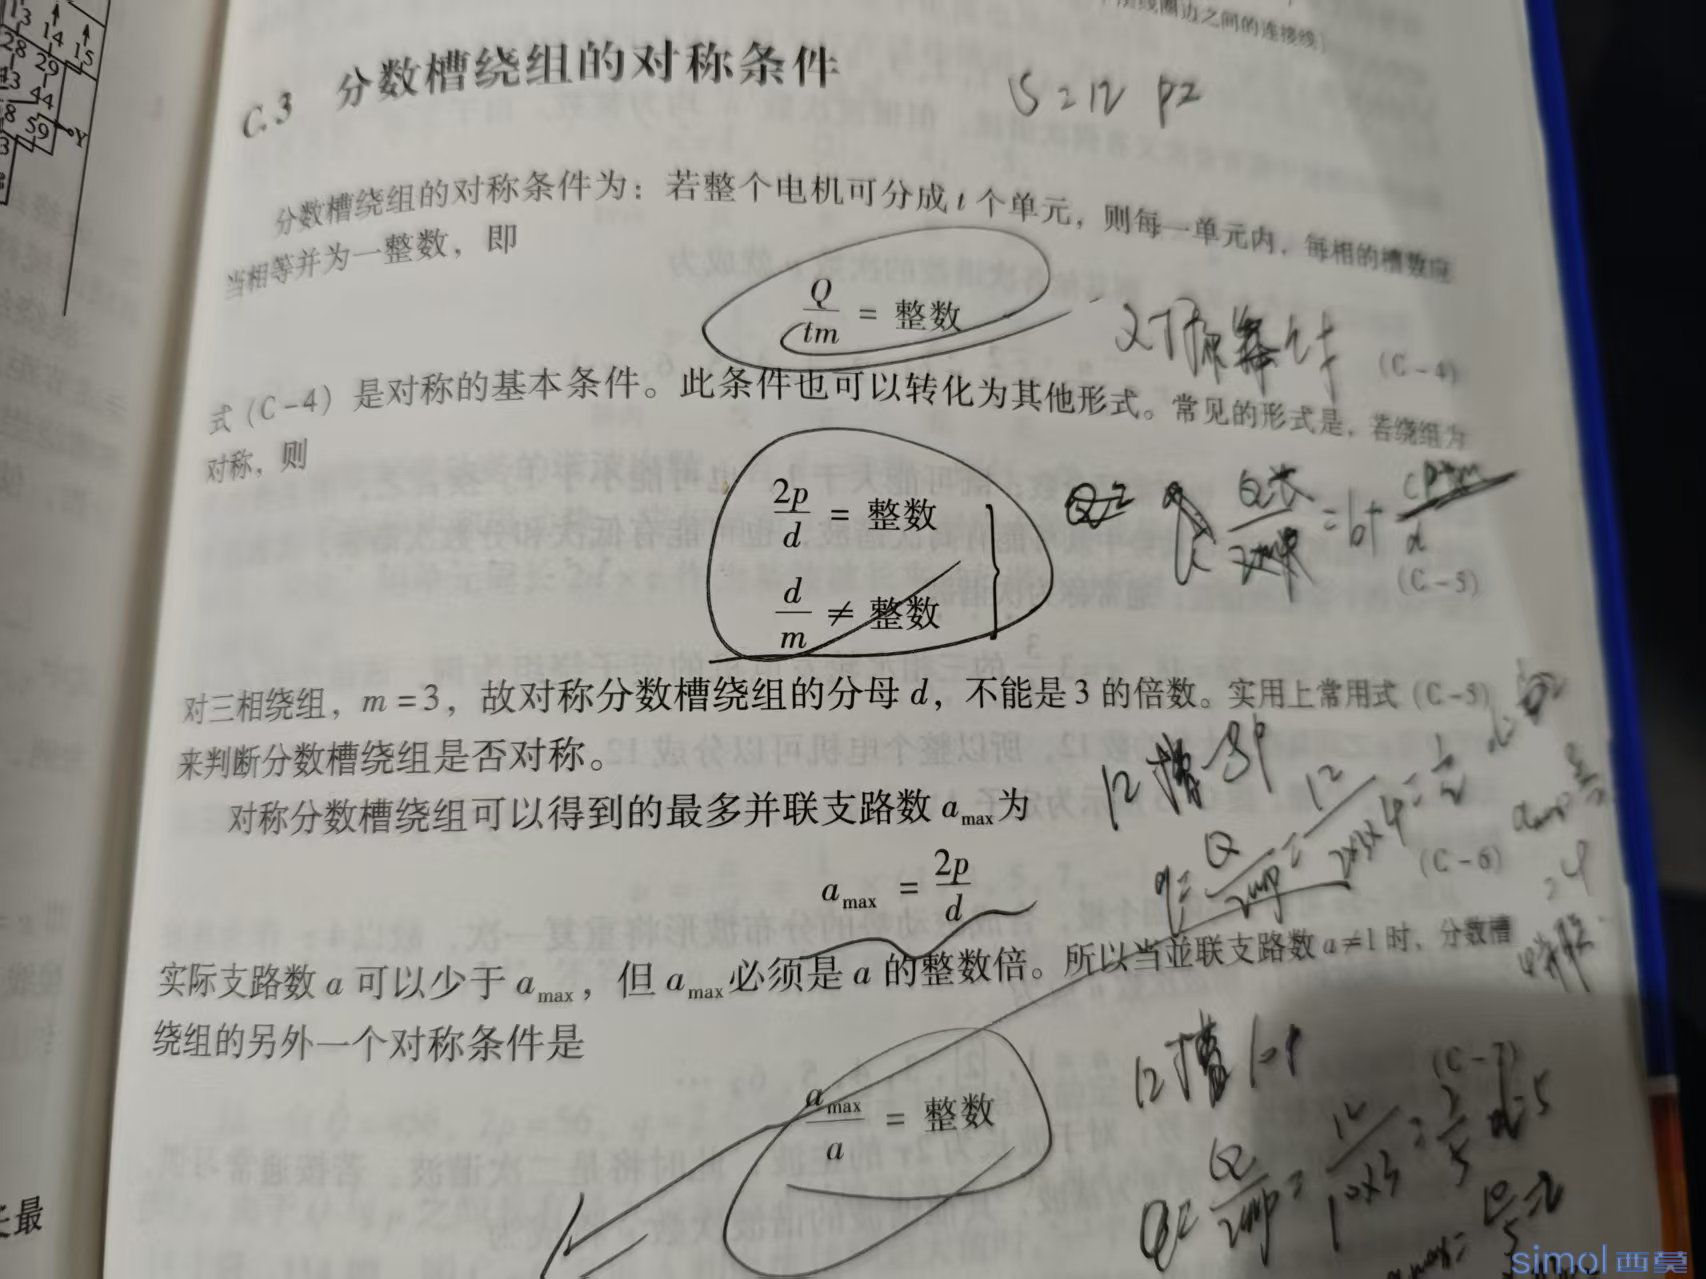 13
14
15
28
29
44
59
Y
层线圈边之间的连接线)
C.3 分数槽绕组的对称条件
S=12
分数槽绕组的对称条件为:若整个电机可分成 t 个单元,则每一单元内,每相的槽数应
当相等并为一整数,即
Q/tm = 整数
(C-4)
式(C-4)是对称的基本条件。此条件也可以转化为其他形式。常见的形式是,若绕组为
对称,则
2p/d = 整数
d/m ≠ 整数
(C-5)
对三相绕组,m=3,故对称分数槽绕组的分母 d,不能是3的倍数。实用上常用式(C-5)
来判断分数槽绕组是否对称。
12槽 8P
对称分数槽绕组可以得到的最多并联支路数 amax 为
amax = 2p/d
(C-6)
q = Q/2mp = 12/2×3×4 = 1/2
实际支路数 a 可以少于 amax,但 amax 必须是 a 的整数倍。所以当並联支路数 a≠1时,分数槽
绕组的另外一个对称条件是
amax/a = 整数
(C-7)
12槽 10P
Q/2mp = 12/10×3 = 2/5 d=5
10/5=2
最
simol西莫